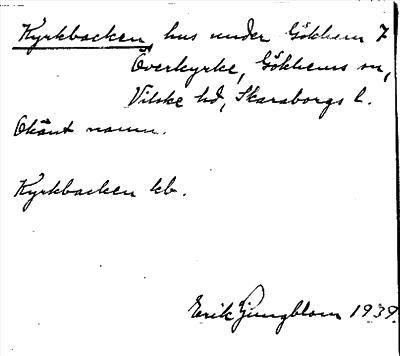 Kyrkbacken, hus under Gökhem 7
Överkyrke, Gökhems sn,
Vilske hd, Skaraborgs l.
Okänt namn.
Kyrkbacken kb.
Erik Ljungblom 1939.